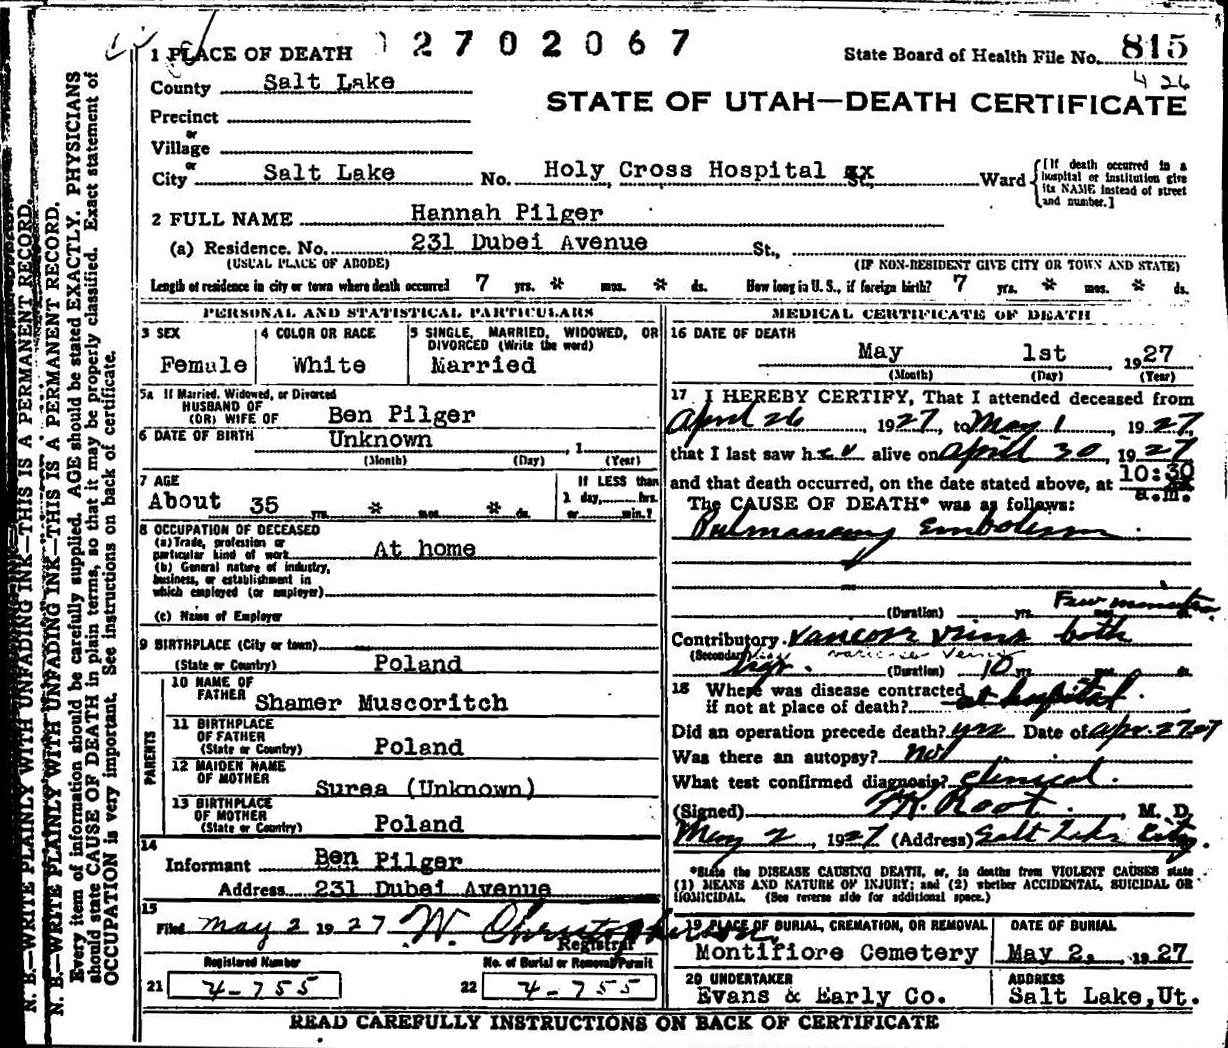 2702067
State Board of Health File No. 815
4 26
1 PLACE OF DEATH
County Salt Lake
STATE OF UTAH—DEATH CERTIFICATE
Precinct
or
Village
or
City Salt Lake No. Holy Cross Hospital St., Ward
[If death occurred in a hospital or institution give its NAME instead of street and number.]
2 FULL NAME Hannah Pilger
(a) Residence. No. 231 Dubei Avenue St.,
(USUAL PLACE OF ABODE) (IF NON-RESIDENT GIVE CITY OR TOWN AND STATE)
Length of residence in city or town where death occurred 7 yrs. * mos. * ds. How long in U. S., if foreign birth? 7 yrs. * mos. * ds.
PERSONAL AND STATISTICAL PARTICULARS
3 SEX
Female
4 COLOR OR RACE
White
5 SINGLE, MARRIED, WIDOWED, OR DIVORCED (Write the word)
Married
5a If Married, Widowed, or Divorced
HUSBAND OF
(OR) WIFE OF Ben Pilger
6 DATE OF BIRTH Unknown , 1
(Month) (Day) (Year)
7 AGE
About 35 yrs. * mos. * ds.
If LESS than
1 day, hrs.
or min.?
8 OCCUPATION OF DECEASED
(a) Trade, profession or
particular kind of work At home
(b) General nature of industry,
business, or establishment in
which employed (or employer)
(c) Name of Employer
9 BIRTHPLACE (City or town)
(State or Country) Poland
PARENTS
10 NAME OF
FATHER Shamer Muscoritch
11 BIRTHPLACE
OF FATHER
(State or Country) Poland
12 MAIDEN NAME
OF MOTHER Surea (Unknown)
13 BIRTHPLACE
OF MOTHER
(State or Country) Poland
14
Informant Ben Pilger
Address 231 Dubei Avenue
15
Filed May 2 1927 W. Christopherson
Registrar
Registered Number
21 4-755
No. of Burial or Removal Permit
22 4-755
MEDICAL CERTIFICATE OF DEATH
16 DATE OF DEATH
May 1st 1927
(Month) (Day) (Year)
17 I HEREBY CERTIFY, That I attended deceased from
April 26 1927, to May 1, 1927,
that I last saw her alive on April 30, 1927
and that death occurred, on the date stated above, at 10:30 a.m.
The CAUSE OF DEATH* was as follows:
Pulmonary Embolism
Few minutes
(Duration) yrs. mos.
Contributory Varicose Veins both
(Secondary) legs. varicose veins (Duration) 10 yrs. mos. ds.
18 Where was disease contracted
if not at place of death? at hospital
Did an operation precede death? yes Date of Apr. 27 27
Was there an autopsy? no
What test confirmed diagnosis? clinical.
(Signed) Root. M. D.
May 2, 1927 (Address) Salt Lake City.
*State the DISEASE CAUSING DEATH, or, in deaths from VIOLENT CAUSES state
(1) MEANS AND NATURE OF INJURY; and (2) whether ACCIDENTAL, SUICIDAL OR
HOMICIDAL. (See reverse side for additional space.)
19 PLACE OF BURIAL, CREMATION, OR REMOVAL
Montifiore Cemetery
DATE OF BURIAL
May 2, 1927
20 UNDERTAKER
Evans & Early Co.
ADDRESS
Salt Lake, Ut.
READ CAREFULLY INSTRUCTIONS ON BACK OF CERTIFICATE
N. B.—WRITE PLAINLY WITH UNFADING INK—THIS IS A PERMANENT RECORD.
N. B.—WRITE PLAINLY WITH UNFADING INK—THIS IS A PERMANENT RECORD.
Every item of information should be carefully supplied. AGE should be stated EXACTLY. PHYSICIANS
should state CAUSE OF DEATH in plain terms, so that it may be properly classified. Exact statement of
OCCUPATION is very important. See instructions on back of certificate.